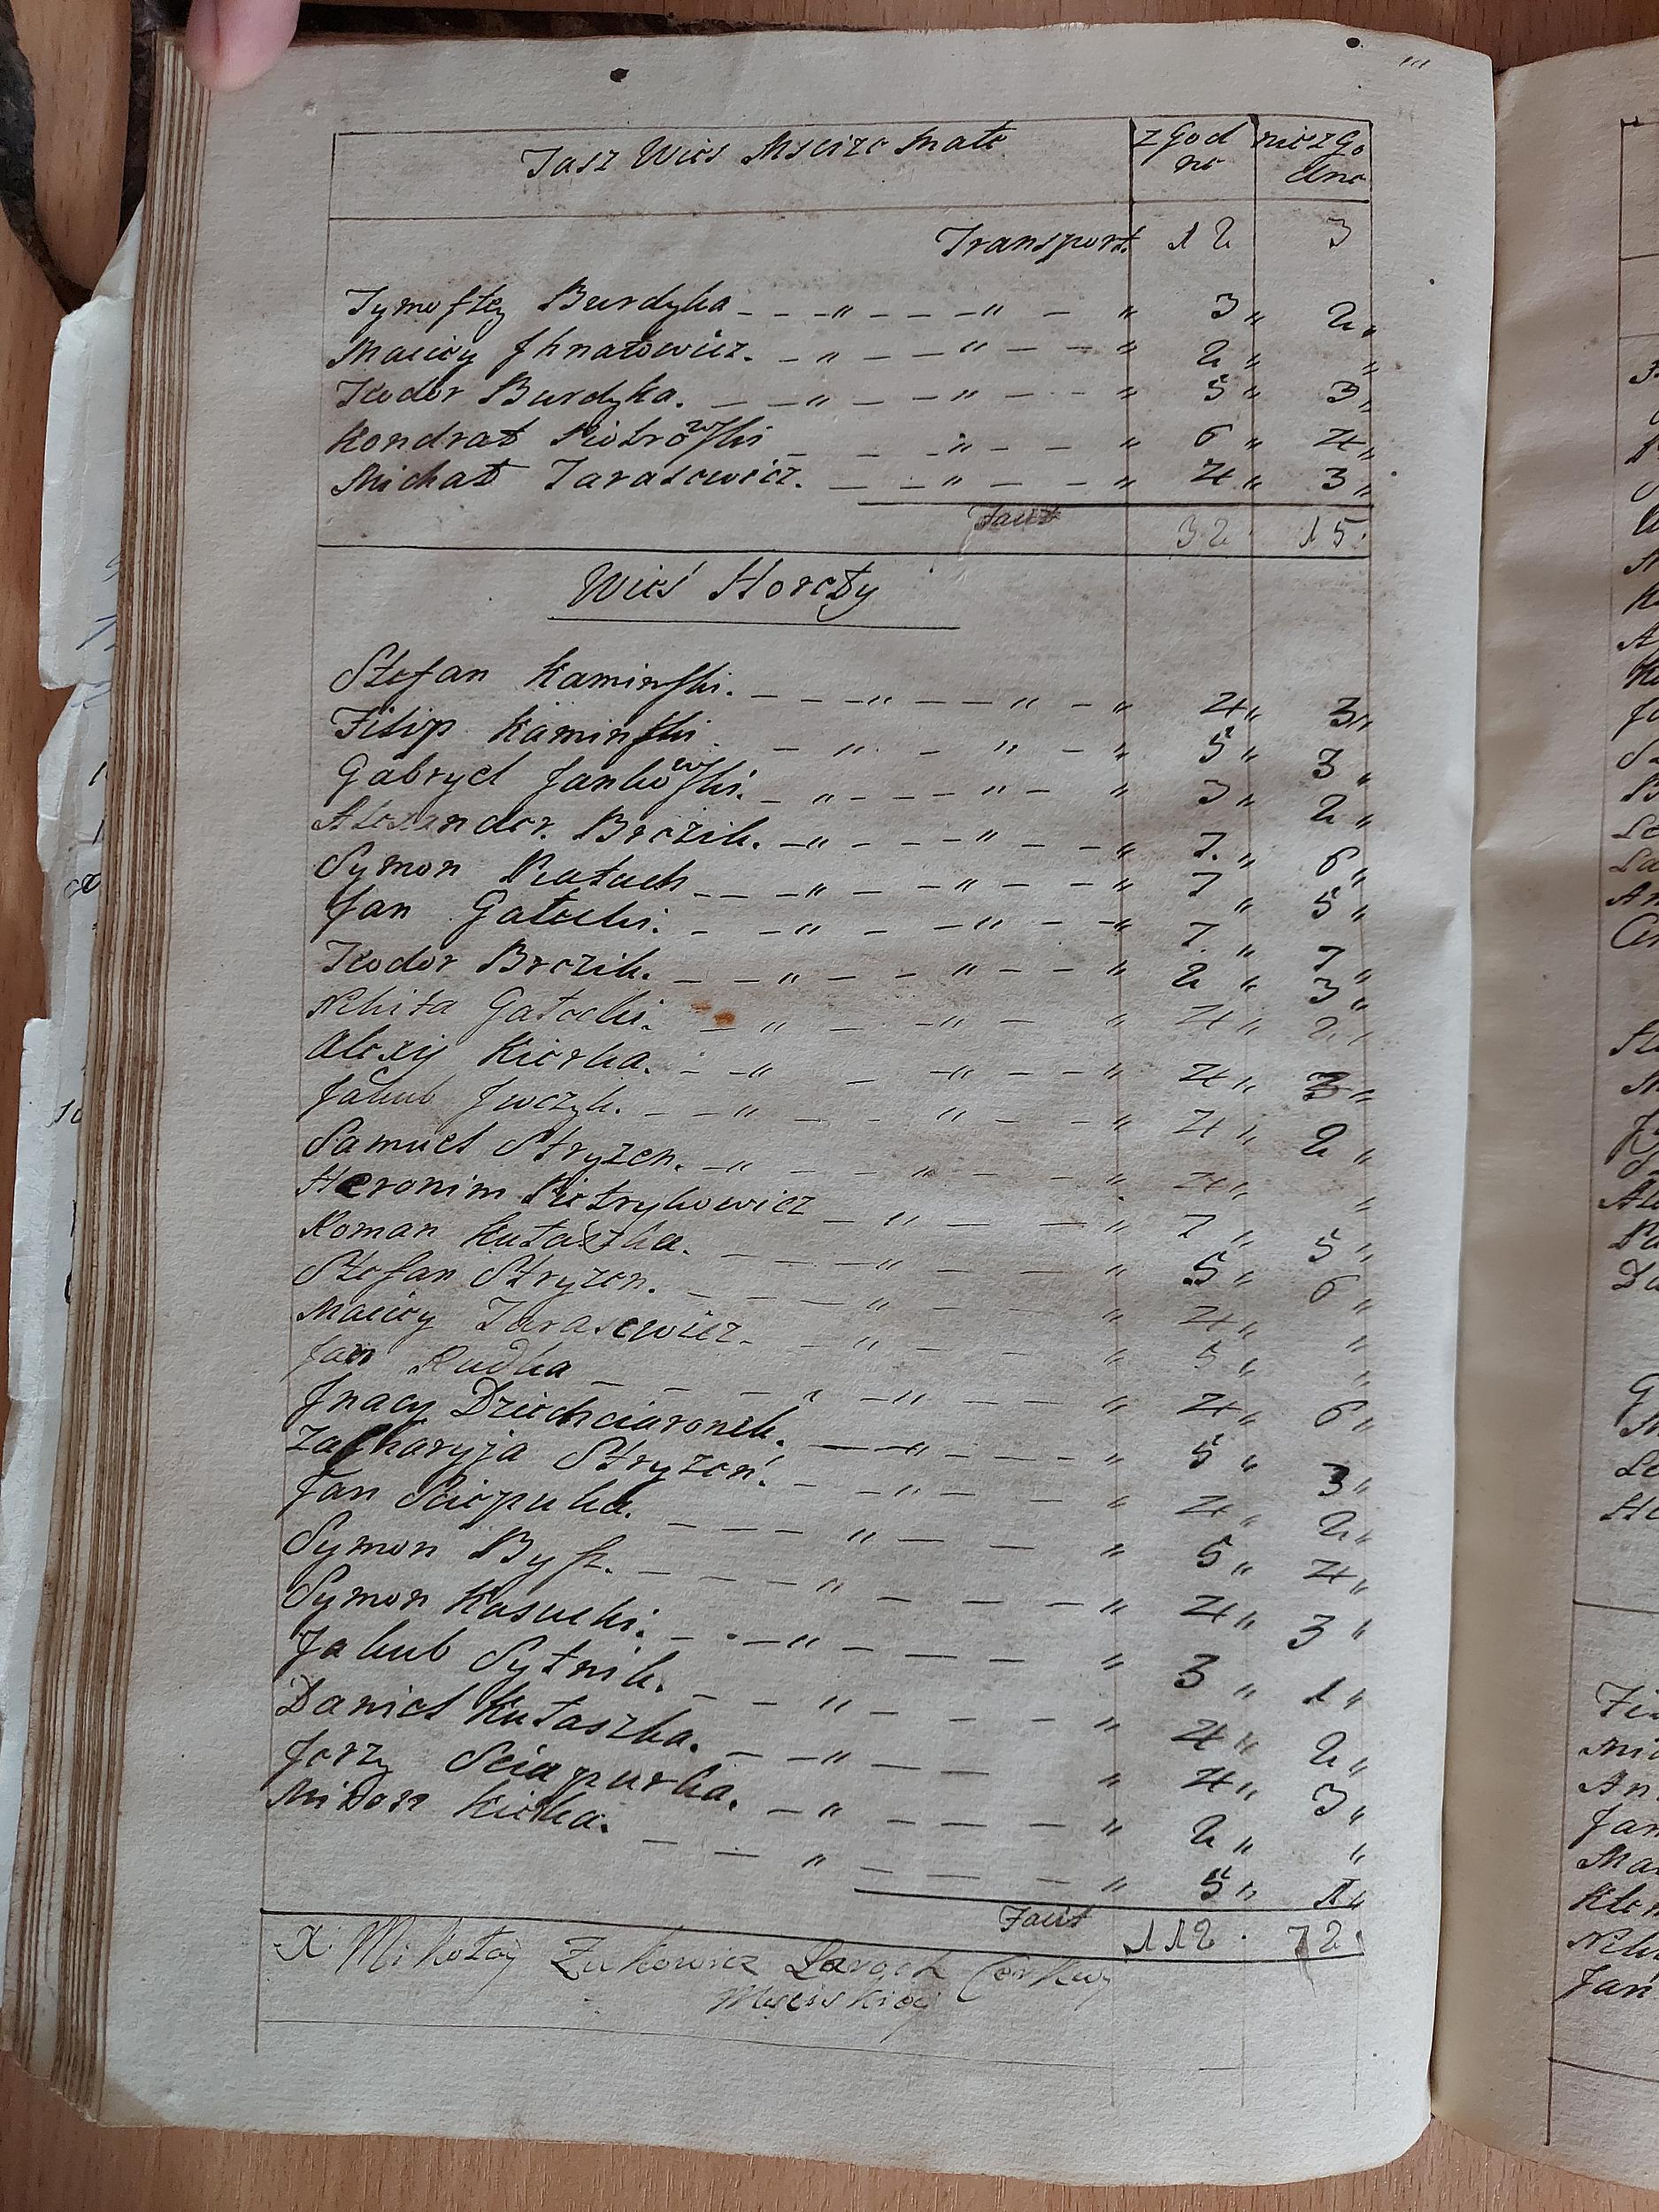 Tasz Wieś Mscize Małe | zgod ne | niezgo dne
Transport. 12 3
Tymoftey Burdyka - - - „ - - - „ - „ 3 „ 2 „
Maciey Jhnatowicz. - „ - - „ - - „ 2 „ „
Teodor Burdyka. - - - „ - - - „ - - - „ 5 „ 3 „
Kondrat Piotrowski - - „ - - „ 6 „ 4 „
Michał Tarasewicz. - - „ - - „ 4 „ 3 „
Fasit 32. 15.
Wieś Horeły
Stefan Kaminski. - - - „ - - - „ - „ 4 „ 3 „
Filip Kaminski - „ - „ - „ 5 „ 3 „
Gabryel Jankowski. - „ - - - „ - „ 3 „ 2 „
Alexander Brezik. - „ - - - „ - - „ 7. „ 6 „
Symon - - - „ - - „ - - „ 7 „ 5 „
Jan Gatecki. - - „ - - „ - - „ 7. „ 7 „
Teodor Brezik. - - - „ - - - „ - - „ 2 „ 3 „
Nikita Gatecki. - „ - - „ - „ 4 „ 2 „
Alexij Kierka. - - „ - - „ - - „ 4 „ 3 „
Jakub Jwczyk. - - „ - - - „ - - - „ 4 „ 2 „
Samuel Stryzen. - „ - - - „ - - „ 4 „ „
Heronim Pietrykowicz - „ - - - „ 7 „ 5 „
Roman Kutaszka. - - - „ - - - „ 5 „ 6 „
Stefan Stryzen. - - - - „ - - - „ 4 „ „
Maciey Tarasewicz - - „ - - - - „ 5 „ „
Jan Rudka - - - „ - „ - - - „ 4 „ 6 „
Jnacy Dziechciaronek. - - „ - - - - „ 5 „ 3 „
Zacharyja Stryzeń. - - „ - - - „ 4 „ 2 „
Jan Sciepuka. - - - „ - - - „ 5 „ 4 „
Symon - - - - „ - - - - „ 4 „ 3 „
Symon Kasucki. - - „ - - - - „ 3 „ 1 „
Jakub Sytnik. - - „ - - - - „ 4 „ 2 „
Daniel Kutaszka. - - „ - - - „ 4 „ 3 „
Jerzy Sciapurka. - „ - - - - „ 2 „ „
Miron Kierka. - - „ - - - - „ 5 „ 1 „
Fasit 112. 72.
X Mikołaj Zukowicz Cerkwy
Msciskiey